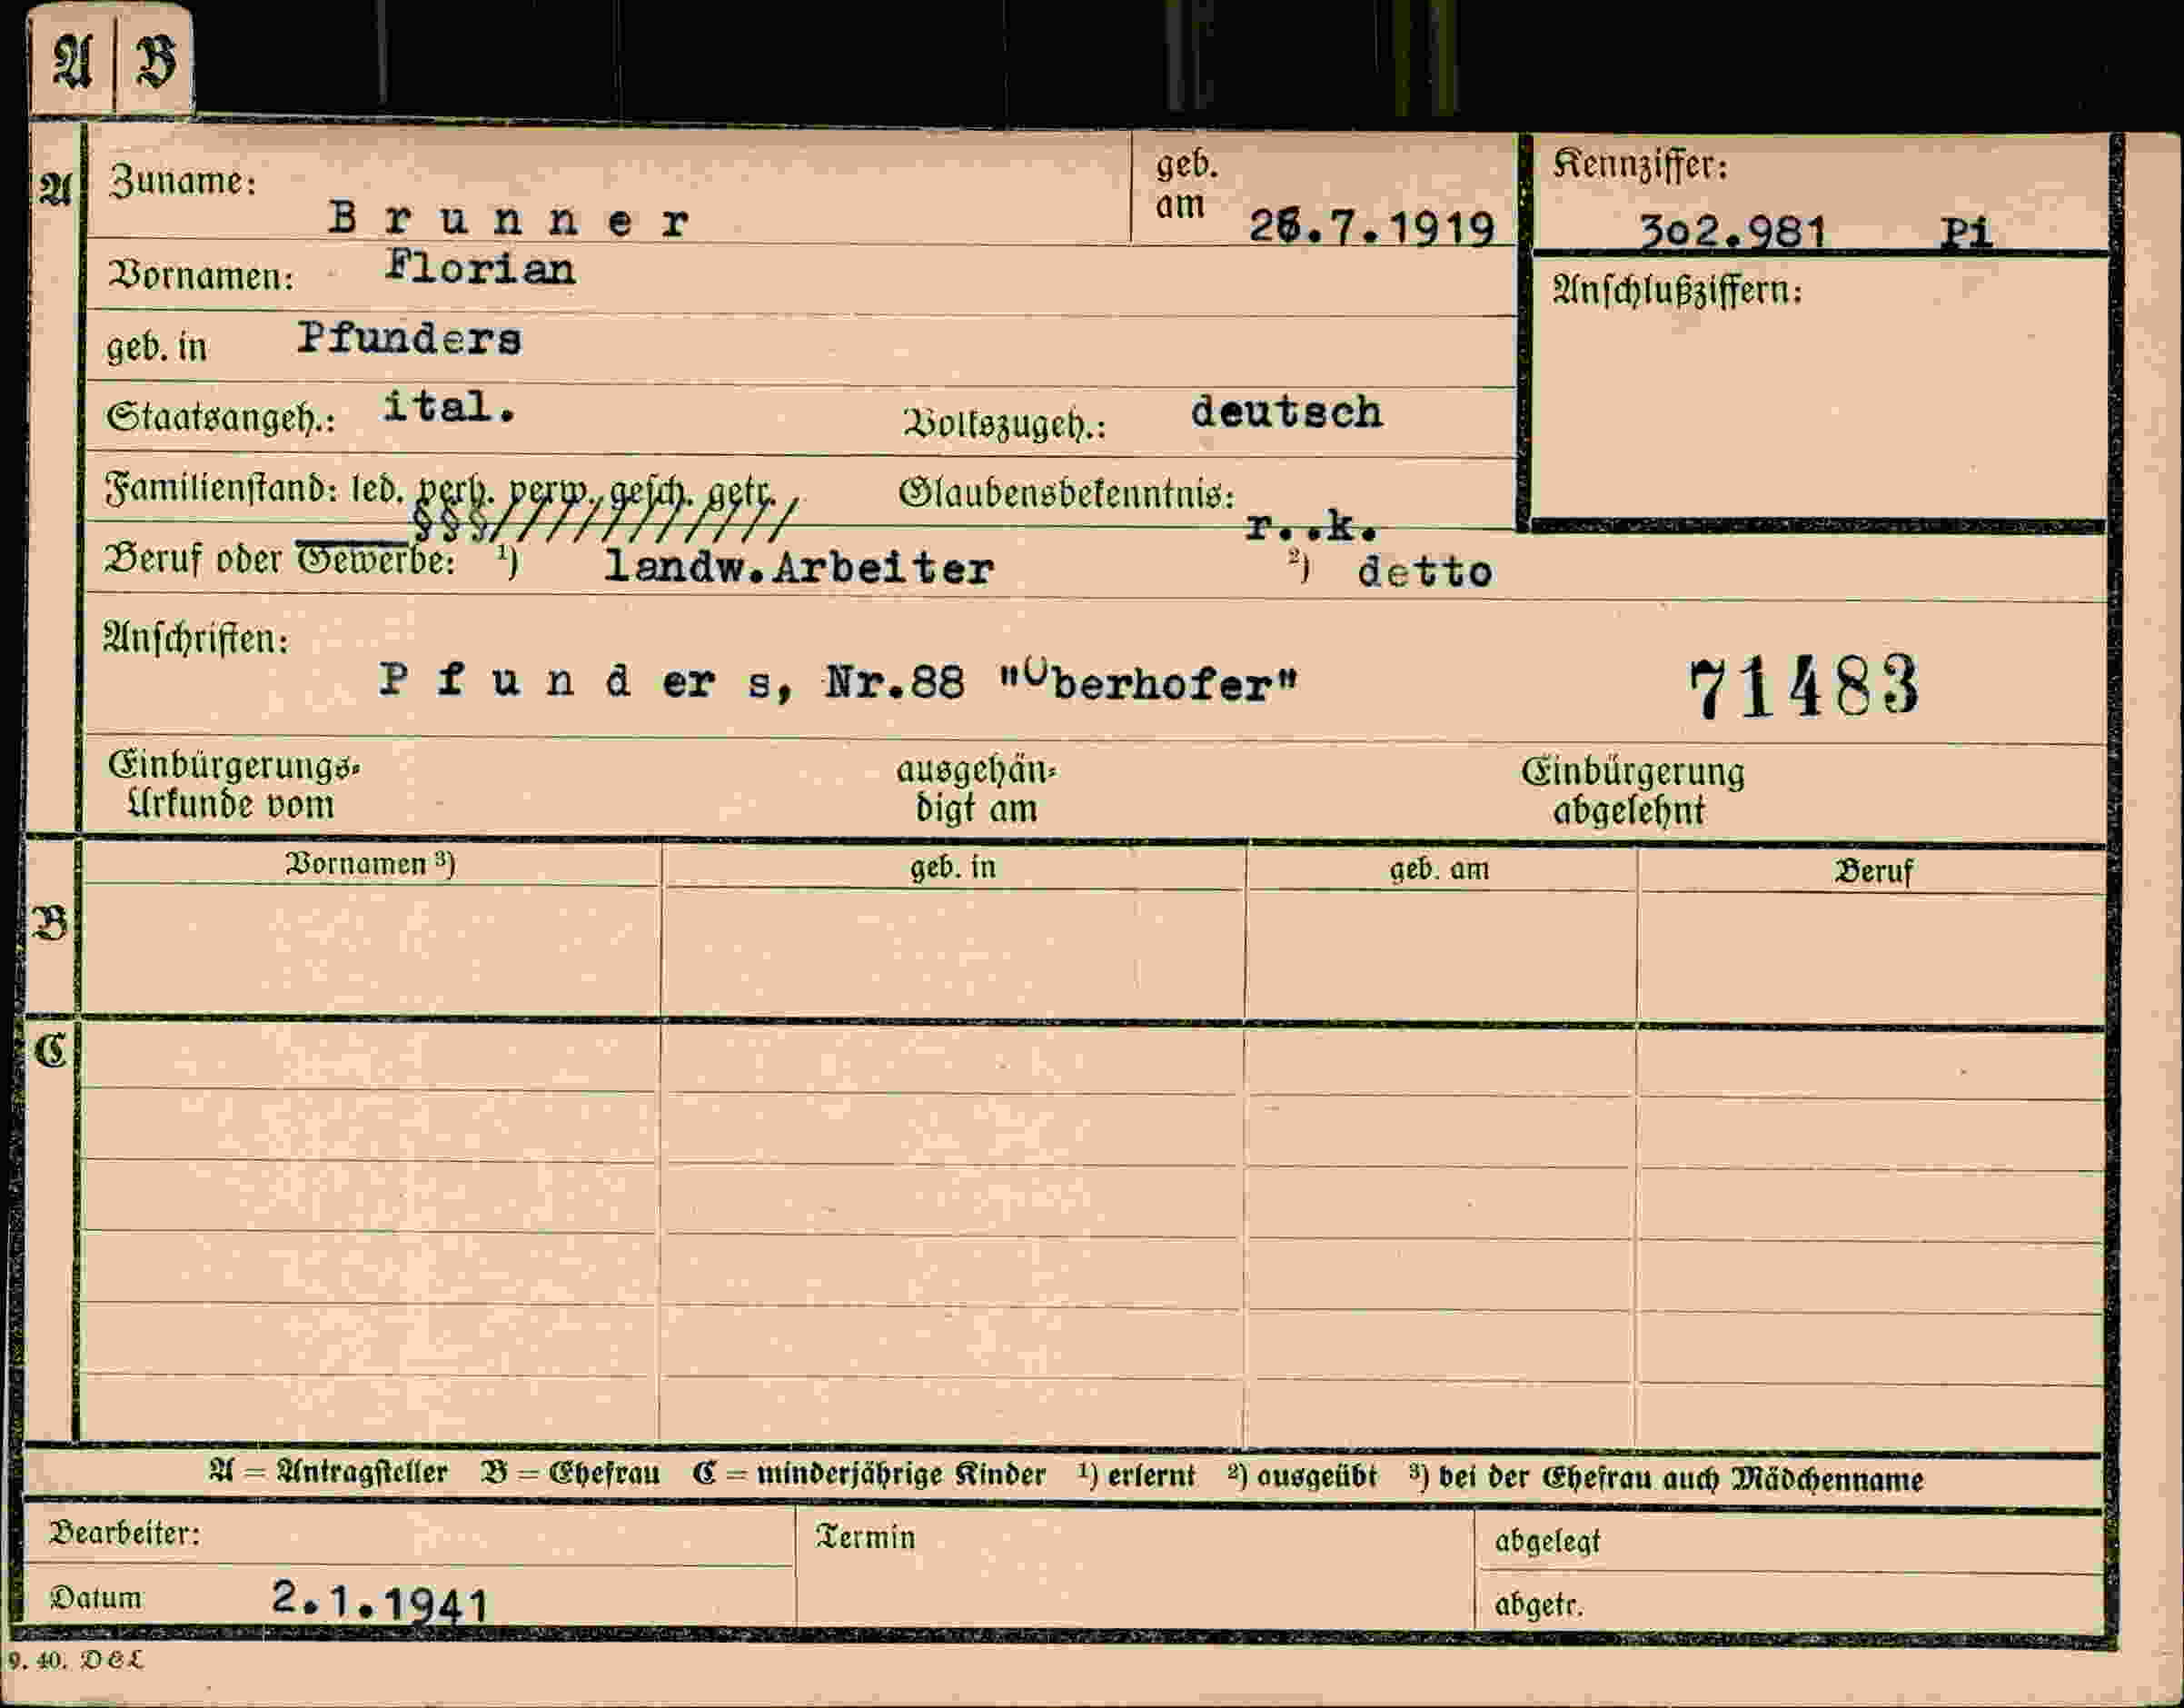 A B
A Zuname: Brunner geb. am 26.7.1919 Kennziffer: 302.981 Pi
Vornamen: Florian Anschlußziffern:
geb. in Pfunders
Staatsangeh.: ital. Volkszugeh.: deutsch
Familienstand: led. verh. verw. gesch. getr. Glaubensbekenntnis: r..k.
Beruf oder Gewerbe: ¹) landw.Arbeiter ²) detto
Anschriften:
Pfunders, Nr.88 "Oberhofer" 71483
Einbürgerungs- ausgehän- Einbürgerung
Urkunde vom digt am abgelehnt
Vornamen ³) geb. in geb. am Beruf
B
C
A = Antragsteller B = Ehefrau C = minderjährige Kinder ¹) erlernt ²) ausgeübt ³) bei der Ehefrau auch Mädchenname
Bearbeiter: Termin abgelegt
Datum 2.1.1941 abgetr.
9. 40. DEL